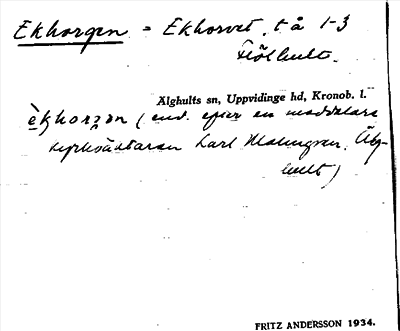 Ekhorgen = Ekhorvet, t å 1-3
Flöthult.
Älghults sn, Uppvidinge hd, Kronob. l.
èkhorzən (end. efter en meddelare
kyrkvaktaren Karl Malmgren, Älg-
hult)
FRITZ ANDERSSON 1934.